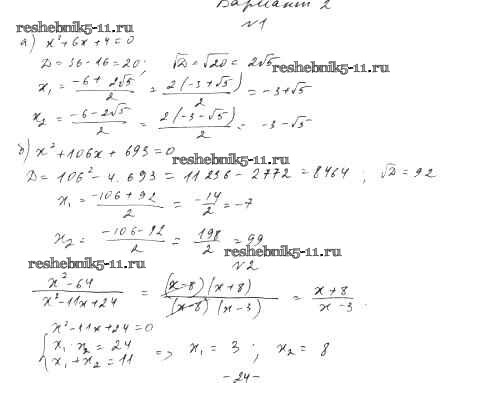 Вариант 2
№1
reshebnik5-11.ru
а) x²+6x+4=0
D=36-16=20; √D=√20=2√5
reshebnik5-11.ru
x₁=(-6+2√5)/2=2(-3+√5)/2=-3+√5
x₂=(-6-2√5)/2=2(-3-√5)/2=-3-√5
reshebnik5-11.ru
б) x²+106x+693=0
D=106²-4.693=11236-2772=8464; √D=92
x₁=(-106+92)/2=-14/2=-7
x₂=(-106-92)/2=198/2=99
reshebnik5-11.ru
reshebnik5-11.ru
№2
(x²-64)/(x²-11x+24)=(x-8)(x+8)/(x-8)(x-3)=(x+8)/(x-3).
{x²-11x+24=0
x₁·x₂=24
x₁+x₂=11 => x₁=3; x₂=8
-24-